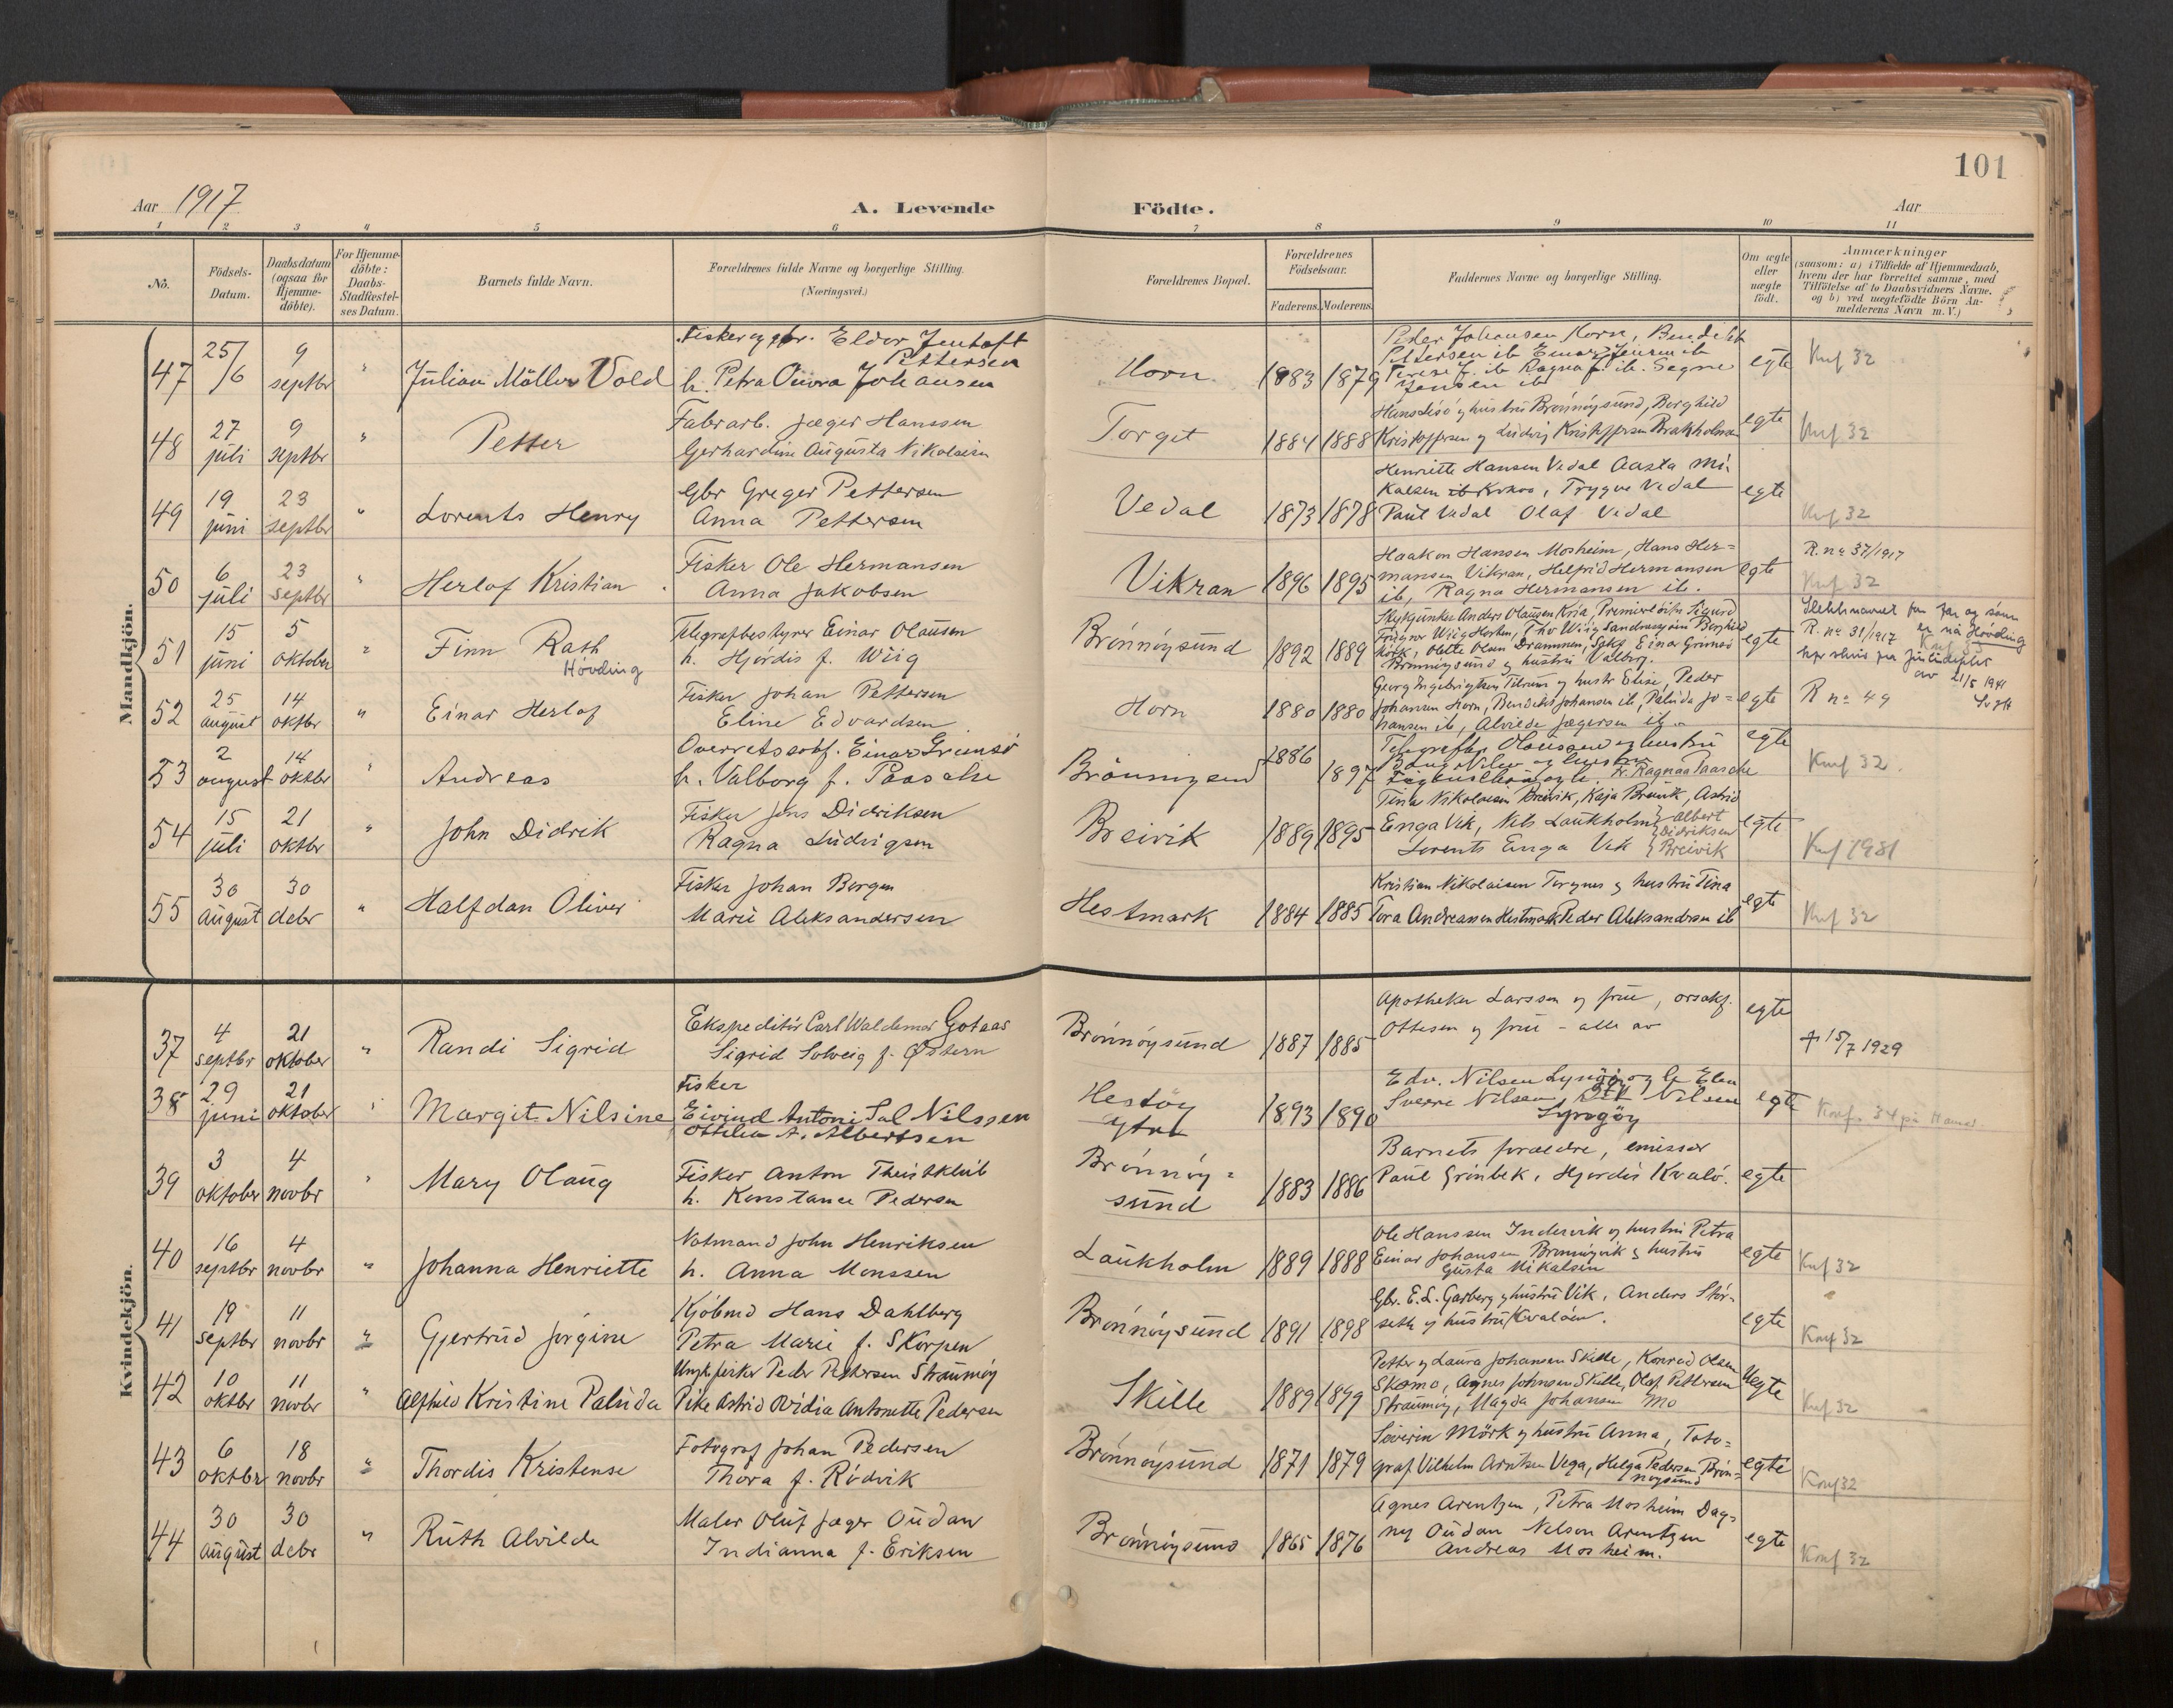 101
Aar 1917
A. Levende Födte.
Aar
1 2 3 4 5 6 7 8 9 10 11
No.
Födsels-
Datum.
Daabsdatum
(ogsaa for
Hjemme-
döbte).
For Hjemme-
döbte:
Daabs-
Stadfæstel-
ses Datum.
Barnets fulde Navn.
Forældrenes fulde Navne og borgerlige Stilling.
(Næringsvei.)
Forældrenes Bopæl.
Forældrenes
Födselsaar.
Faderens. Moderens.
Faddernes Navne og borgerlige Stilling.
Om ægte
eller
uægte
födt.
Anmærkninger
(saasom: a) i Tilfælde af Hjemmedaab,
hvem der har forrettet samme, med
Tilföielse af to Daabsvidners Navne.
og b) ved uægtefödte Börn An-
melderens Navn m. V.)
Mandkjön.
47
25/6
9
septbr
"
Julian Möller Vold
Fisker og gbr. Eldor Jentoft
Pettersen
h. Petra Johansen
Horn
1883 1879
Peder Johansen Horn, Bendikt
Pettersen ib Einar Jensen ib
Terese J. ib Ragna J. ib. Segne
Jensen ib
egte
Knf 32
48
27
juli
9
septbr
"
Petter
Fabrarb. Jæger Hanssen
Gerhardine Augusta Nikolaisen
Torget
1884 1888
Hans Lisö og hustru Brönnöysund, Borghild
Kristoffersen og Ludvig Kristoffersen Brakholmen
egte
Knf 32
49
19
juni
23
septbr
"
Lorents Henry
Gbr Greger Pettersen
Anna Pettersen
Vedal
1873 1878
Henriette Hansen Vedal Aasta Mi-
kalsen ib, Trygve Vedal
Paul Vedal Olaf Vedal
egte
Knf 32
50
6
juli
23
septbr
"
Herlof Kristian
Fisker Ole Hermansen
Anna Jakobsen
Vikran
1896 1895
Haakon Hansen Mosheim, Hans Her=
mansen Vikran, Helfrid Hermansen
ib, Ragna Hermansen ib.
egte
R. no 37/1917
Knf 32
51
15
juni
5
oktober
"
Finn Rath
Hövding
Telegrafbestyrer Einar Olaussen
h. Hjördis f. Wiig
Brönnöysund
1892 1889
Anders Olaussen Kria, Sigurd
Wiig Horten, Thor Wiig Sandnessjöen Borghild
Mörk, Olette Olsen Drammen, Einar Grimsö
Brönnöysund og hustru Valborg.
egte
Slektnavnet for far og sönn
er nå Hövding
R. no 31/1917
av 21/5 1941
52
25
august
14
oktbr
"
Einar Herlof
Fisker Johan Pettersen
Eline Edvardsen
Horn
1880 1880
Georg Ingebrigtsen Tilrum og hustr Elise, Peder
Johansen Horn, Bendikt Johansen ib, Palida Jo=
hansen ib, Alvilde Jægersen ib.
egte
R no 49
53
2
august
14
oktbr
"
Andreas
Overretssakf. Einar Grimsö
h. Valborg f. Paasche
Brönnöysund
1886
1897
Telegrafbp Olaussen og hustru
Fr. Ragna Paasche
egte
Knf 32.
54
15
juli
21
oktbr
"
John Didrik
Fisker Jens Didriksen
Ragna Ludvigsen
Breivik
1889 1895
Tina Nikolaisen Breivik, Kaja Breivik, Astrid
Enga Vik, Nels Laukholm, Albert
Didriksen
Lorents Enga Vik Breivik
egte
Knf 1931
55
30
august
30
debr
"
Halfdan Oliver
Fisker Johan Borgen
Marie Aleksandersen
Hestmark
1884 1885
Kristian Nikolaisen Torgnes og hustru Tina
Tora Andreassen Hestmark Peder Aleksandersen ib
egte
Knf 32
Kvindekjön.
37
4
septbr
21
oktober
"
Randi Sigrid
Ekspeditör Carl Waldemar Gotaas
Sigrid Solveig f. Østern
Brönnöysund
1887 1885
Apotheker Larssen og frue, orsakf.
Ottesen og frue – alle av
egte
+ 15/7 1929
38
29
juni
21
oktober
"
Margit Nilsine
Fisker
Eivind Antoni Sal Nilssen
Ottilia A. Albertsen
Hestöy
ytre
1893 1890
Edv. Nilsen Lyngöy og Elen
Sverre Nilsen, Nilsen
Lyngöy
egte
Konf. 34 på Hamar
39
3
oktober
4
novbr
"
Mary Olaug
Fisker Anton Theistklub
h. Konstance Pedersen
Brönnöy=
sund
1883 1886
Barnets forældre, emissær
Paul Grönbek, Hjördis Kvalö.
egte
40
16
septbr
4
novbr
"
Johanna Henriette
Notmand John Henriksen
h. Anna Monssen
Laukholm
1889 1888
Ole Hanssen Indervik og hustru Petra
Einar Johansen Brönnöyvik og hustru
Gusta Mikalsen
egte
Knf 32
41
19
septbr
11
novbr
"
Gjertrud Jörgine
Kjöbmd Hans Dahlberg
Petra Marie f. Skorpen
Brönnöysund
1891 1898
Gbr. E. L. Garberg og hustru Vik, Anders Stör-
seth og hustru Kvalöen.
egte
Konf 32
42
10
oktbr
11
novbr
"
Alfhild Kristine Palida
Ungk. fisker Peder Pettersen Straumöy
Pike Astrid Ovidia Antonette Pedersen
Skille
1889 1899
Petter og Laura Johansen Skille, Konrad Olsen
Skomo, Agnes Johnsen Skille, Olaf Pettersen
Straumöy, Magda Johansen Mo
Uegte
Knf 32
43
6
oktbr
18
novbr
"
Thordis Kristense
Fotograf Johan Pedersen
Thora f. Rödvik
Brönnöysund
1871 1879
Severin Mörk og hustru Anna, Foto=
graf Vilhelm Arntzen Vega, Helga Pedersen Brön=
nöysund
egte
Konf 32
44
30
august
30
debr
"
Ruth Alvilde
Maler Oluf Jæger Oudan
Indianna f. Eriksen
Brönnöysund
1865 1876
Agnes Arentzen, Petra Mosheim Dag=
ny Oudan Nelson Arentzen
Andreas Mosheim.
egte
Konf 32